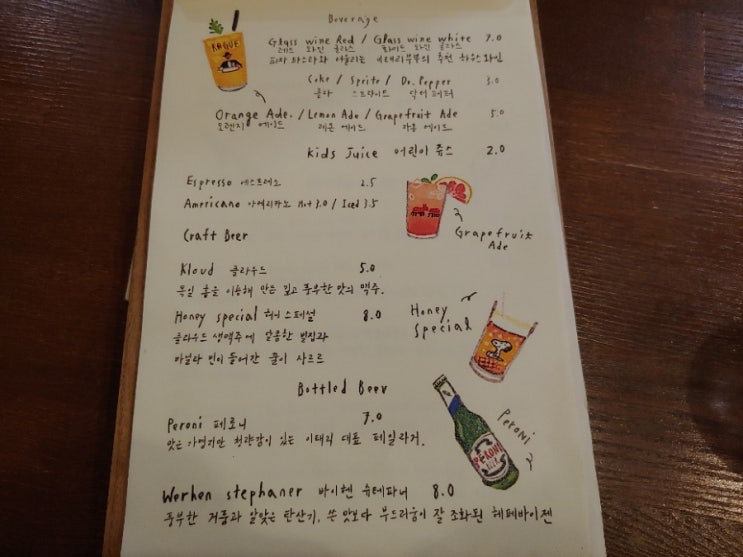 Beverage
Glass wine Red / Glass wine white 7.0
레드 와인 글라스 화이트 와인 글라스
피자 파스타와 어울리는 이태리부부의 추천 하우스와인
Coke / Sprite / Dr. Pepper 3.0
콜라 스프라이트 닥터페퍼
Orange Ade. / Lemon Ade / Grapefruit Ade 5.0
오렌지 에이드 레몬 에이드 자몽 에이드
Kids Juice 어린이 쥬스 2.0
Espresso 에스프레소 2.5
Americano 아메리카노 Hot 3.0 / Iced 3.5
Grapefruit
Ade
Craft Beer
Kloud 클라우드 5.0
독일 홉을 이용해 만든 깊고 풍부한 맛의 맥주.
Honey special 허니 스페셜 8.0
클라우드 생맥주에 달콤한 벌집과
바닐라 빈이 들어간 꿀이 사르르
Honey
Special
Bottled Beer
Peroni 페로니 7.0
맛은 가볍지만 청량감이 있는 이태리 대표 페일라거.
Peroni
PERONI
Werhen stephaner 바이헨 슈테파너 8.0
풍부한 거품과 알맞은 탄산기, 쓴 맛보다 부드러움이 잘 조화된 헤페바이젠